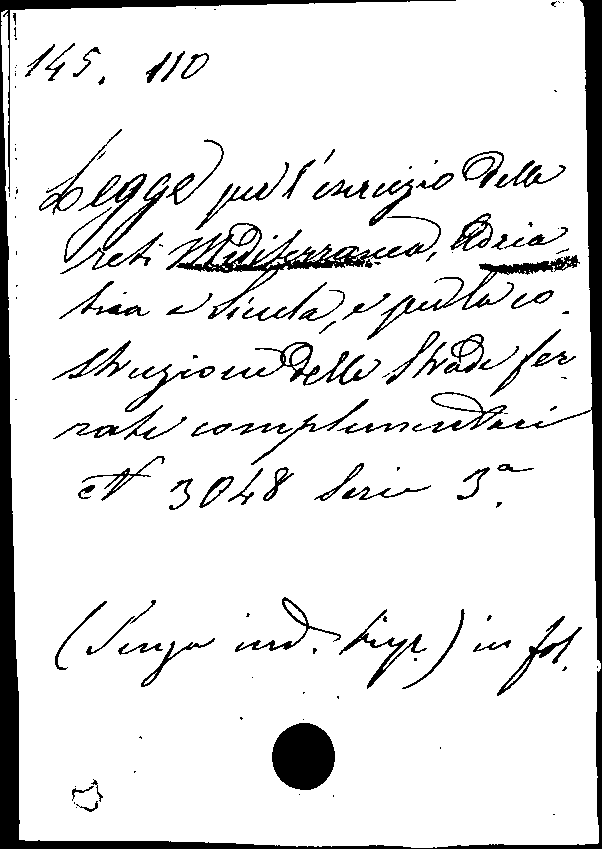 145. 110
Legge per l'esercizio delle
reti Mediterranea, Adria-
tica e Sicula, e per la co-
struzione delle Strade fer-
rate complementari
N 3048 Serie 3.a
(Senza ind. tipr.) in fol.